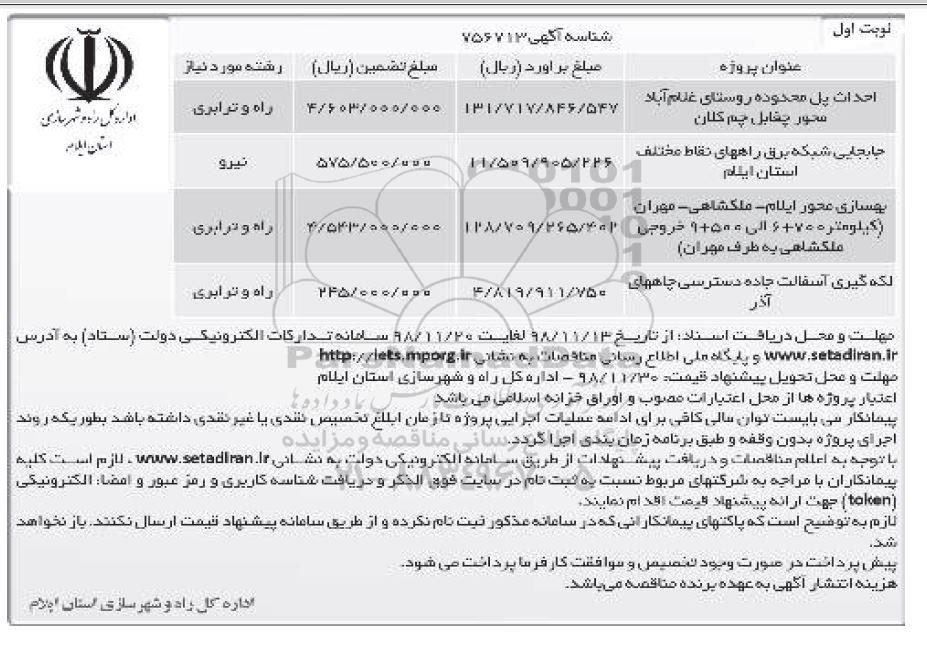 نوبت اول
شناسه آگهی ۷۵۶۷۱۳
اداره کل راه و شهرسازی
استان ایلام
عنوان پروژه مبلغ براورد (ریال) مبلغ تضمین (ریال) رشته مورد نیاز
احداث پل محدوده روستای غلام‌آباد
محور چغابل چم کلان
۱۳۱/۷۱۷/۸۴۶/۵۴۷ ۴/۶۰۳/۰۰۰/۰۰۰ راه و ترابری
جابجایی شبکه برق راههای نقاط مختلف
استان ایلام
۱۱/۵۰۹/۹۰۵/۲۲۶ ۵۷۵/۵۰۰/۰۰۰ نیرو
بهسازی محور ایلام– ملکشاهی– مهران
(کیلومتر ۷۰۰+۶ الی ۵۰۰+۹ خروجی
ملکشاهی به طرف مهران)
۱۲۸/۷۰۹/۲۶۵/۲۰۲ ۴/۵۴۳/۰۰۰/۰۰۰ راه و ترابری
لکه گیری آسفالت جاده دسترسی چاههای
آذر
۴/۸۱۹/۹۱۱/۷۵۰ ۲۴۵/۰۰۰/۰۰۰ راه و ترابری
مهلت و محل دریافت اسناد: از تاریخ ۹۸/۱۱/۱۳ لغایت ۹۸/۱۱/۲۰ سامانه تدارکات الکترونیکی دولت (ستاد) به آدرس
www.setadiran.ir و پایگاه ملی اطلاع رسانی مناقصات به نشانی http://iets.mporg.ir
مهلت و محل تحویل پیشنهاد قیمت: ۹۸/۱۱/۳۰ – اداره کل راه و شهرسازی استان ایلام
اعتبار پروژه ها از محل اعتبارات مصوب و اوراق خزانه اسلامی می باشد
پیمانکار می بایست توان مالی کافی برای ادامه عملیات اجرایی پروژه تا زمان ابلاغ تخصیص نقدی یا غیر نقدی داشته باشد بطوریکه روند
اجرای پروژه بدون وقفه و طبق برنامه زمان بندی اجرا گردد.
با توجه به اعلام مناقصات و دریافت پیشنهادات از طریق سامانه الکترونیکی دولت به نشانی www.setadiran.ir ، لازم است کلیه
پیمانکاران با مراجعه به شرکتهای مربوط نسبت به ثبت نام در سایت فوق الذکر و دریافت شناسه کاربری و رمز عبور و امضاء الکترونیکی
(token) جهت ارائه پیشنهاد قیمت اقدام نمایند.
لازم به توضیح است که پاکتهای پیمانکارانی که در سامانه مذکور ثبت نام نکرده و از طریق سامانه پیشنهاد قیمت ارسال نکنند، باز نخواهد
شد.
پیش پرداخت در صورت وجود تخصیص و موافقت کارفرما پرداخت می شود.
هزینه انتشار آگهی به عهده برنده مناقصه می‌باشد.
اداره کل راه و شهرسازی استان ایلام